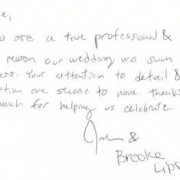 ou are a true professional &
reason our wedding was such
ess. Your attention to detail &
ution are second to none. Thanks
much for helping us celebrate.
&
Brooke
Lips